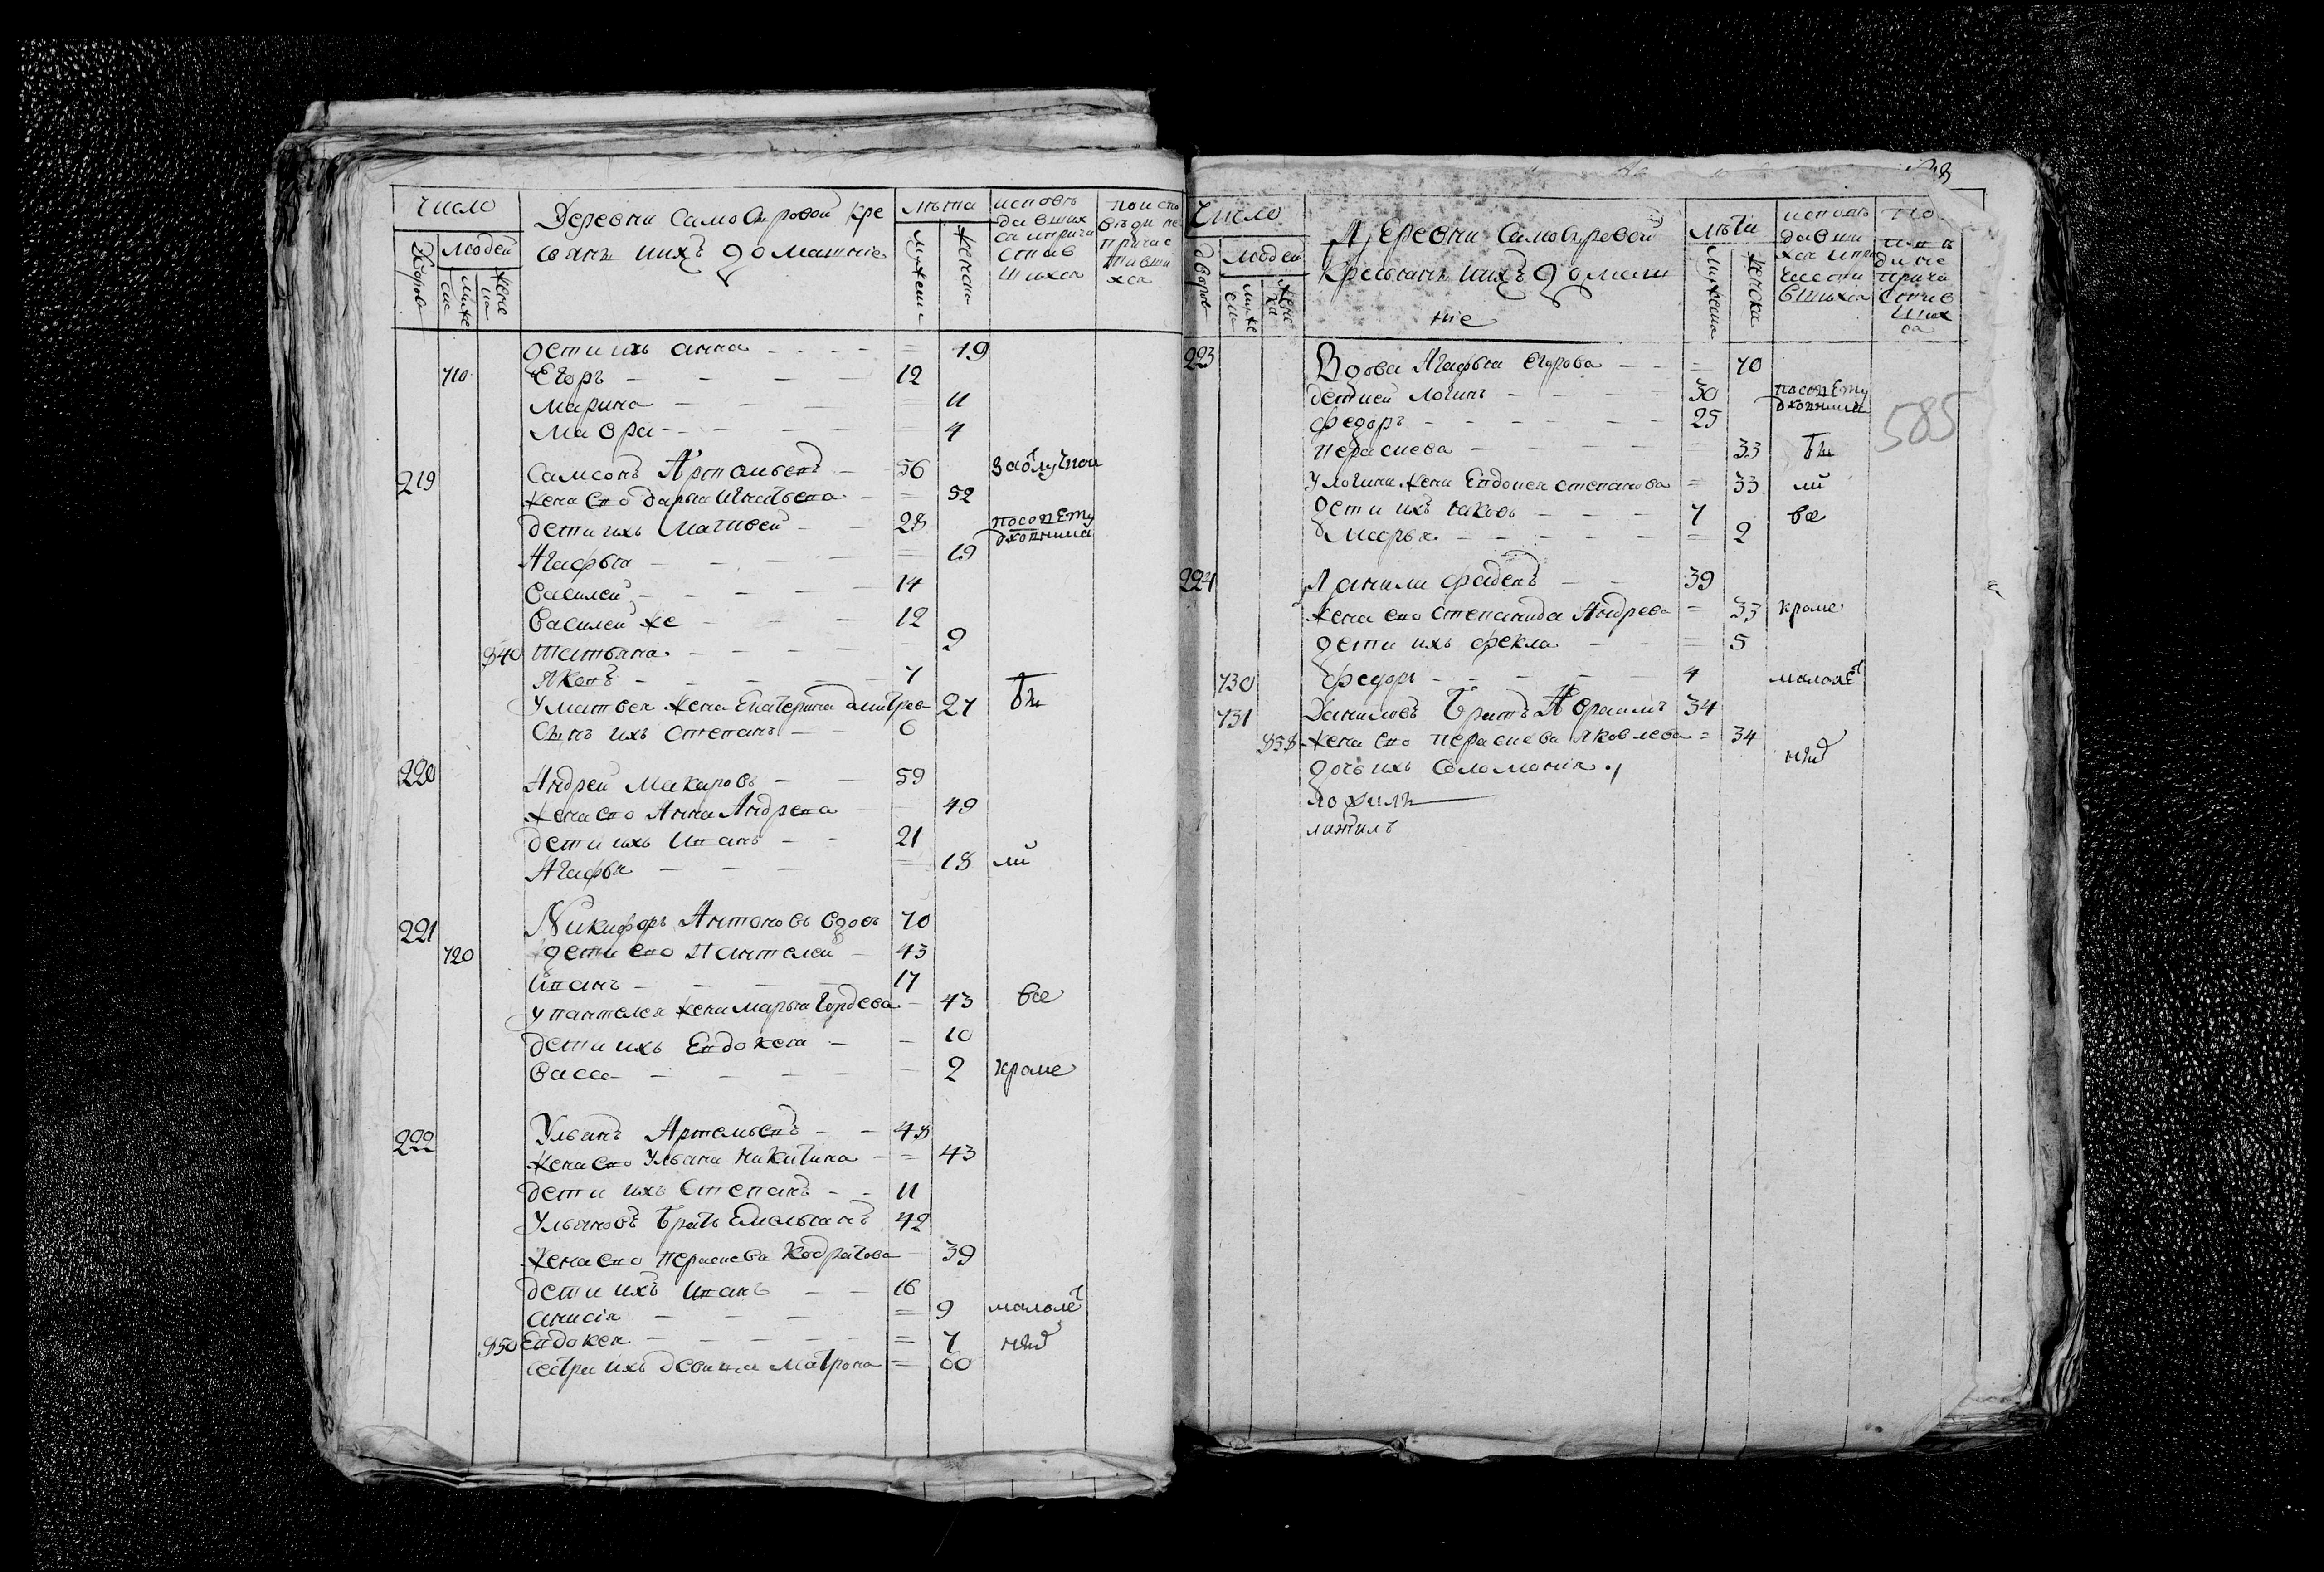 Число
Деревни Самодуровой кре
стьянъ ихъ домашние
лѣта
дворов
людей
мужеска
женска
дети ихъ анна - - - - = 19
710 Егоръ - - - - 12
марина - - - - 11
мавра - - - - 4
219 Самсонъ Артемьевъ - 56 Заблучной
жена ево дарья Игнатьева - = 52
дети ихъ Матвей - - 28
Агафья - - - - = 19
василей - - - - 14
василей же - - - 12
840 татьяна - - - - 9
Яковъ - - - - 7
У матвея жена Екатерина дмитрев 27 бы
Сынъ ихъ степанъ - - 6
220 Андрей Макаровъ - - 59
жена ево Анна Андрева - 49
дети ихъ иванъ - - 21
Агафья - - - = 18 ли
221 Никифоръ Антоновъ вдовъ 70
720 дети ево Пантелей - 43
иванъ - - - - 17
у пантелея жена марья Гордеева - 43 все
дети ихъ Евдокея - - 10
васса - - - - - 2 кроме
222 Ульянъ Артемьевъ - - 48
жена ево Ульяна никитина - = 43
дети ихъ Степанъ - - 11
Ульяновъ братъ Емельянъ 42
жена ево перасева Кодратова 39
дети ихъ иванъ - - 16
анисія - - - = 9 малолет
850 Евдокея - - - - = 7 нид
сестра ихъ девица Матрона = 60
Число
Деревни Самодуровой
Крестьянъ ихъ домаш
ние
лѣта
дворов
людей
мужеска
женска
223 Вдова Агафья Егорова - - = 70
детией логинъ - - - 30
федоръ - - - - 25
585
перасева - - - - 33 бы
У логина жена Евдокея степанова = 33 ли
дети ихъ яковъ - - - 7 все
марья - - - - = 2
224 Данила фадевъ - - 39
жена ево степанида Андрева = 33 кроме
дети ихъ фекла - - = 5
730 федоръ - - - - 4 малолет
731 Даниловъ братъ Авраамъ 34
858 жена ево перасева яковлева = 34
дочь ихъ соломонія 1 нид